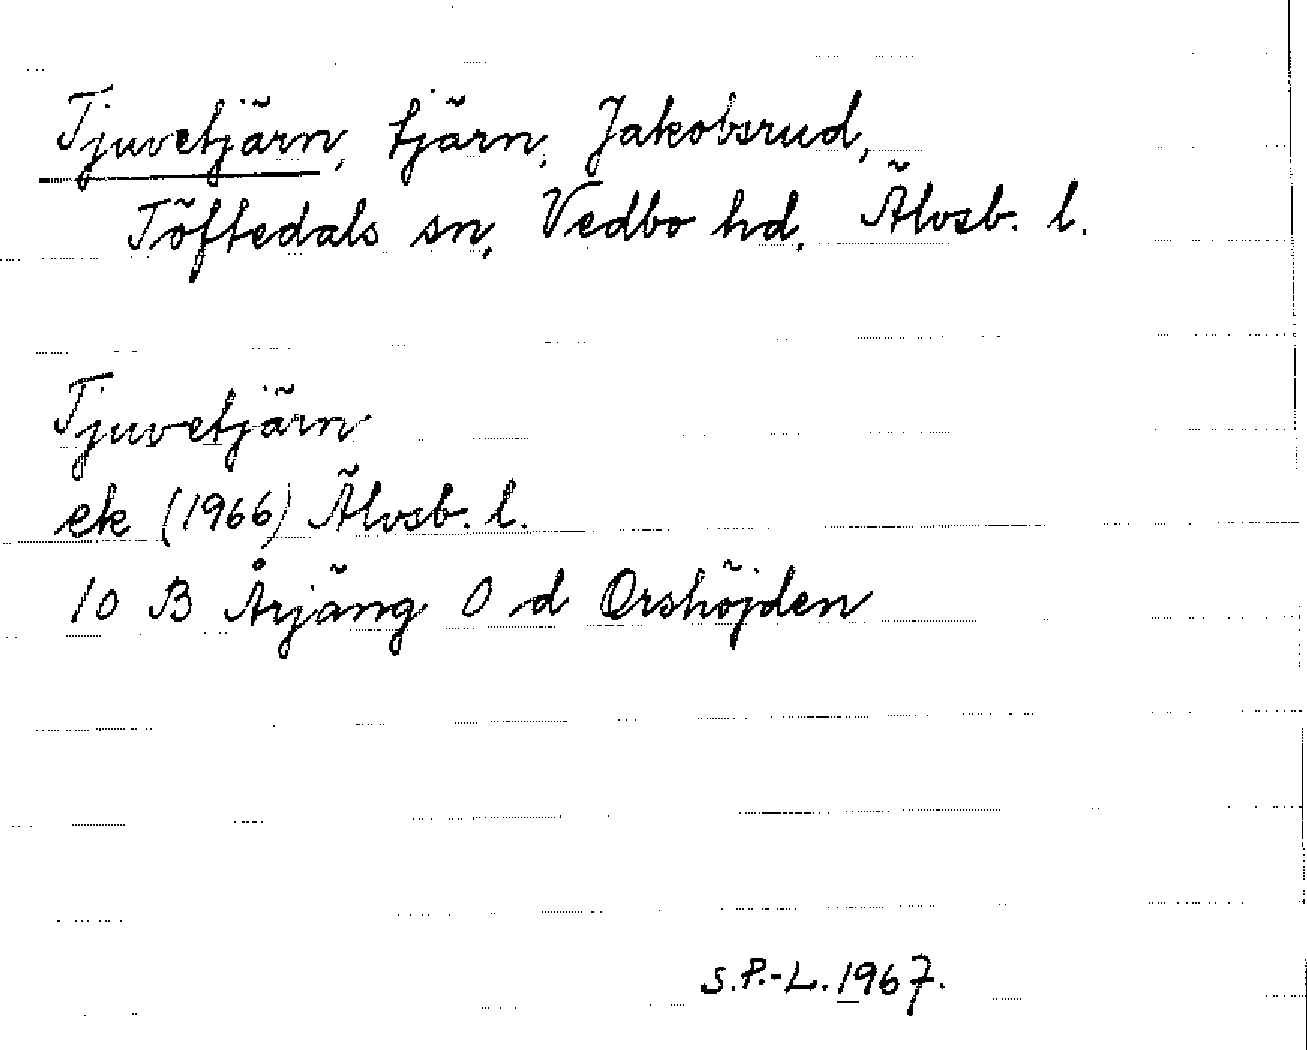 Tjuvetjärn, tjärn, Jakobsrud,
Töftedals sn, Vedbo hd, Älvsb. l.
Tjuvetjärn
ek (1966) Älvsb. l.
10 B Årjäng 0 d Orshöjden
S.P.-L. 1967.